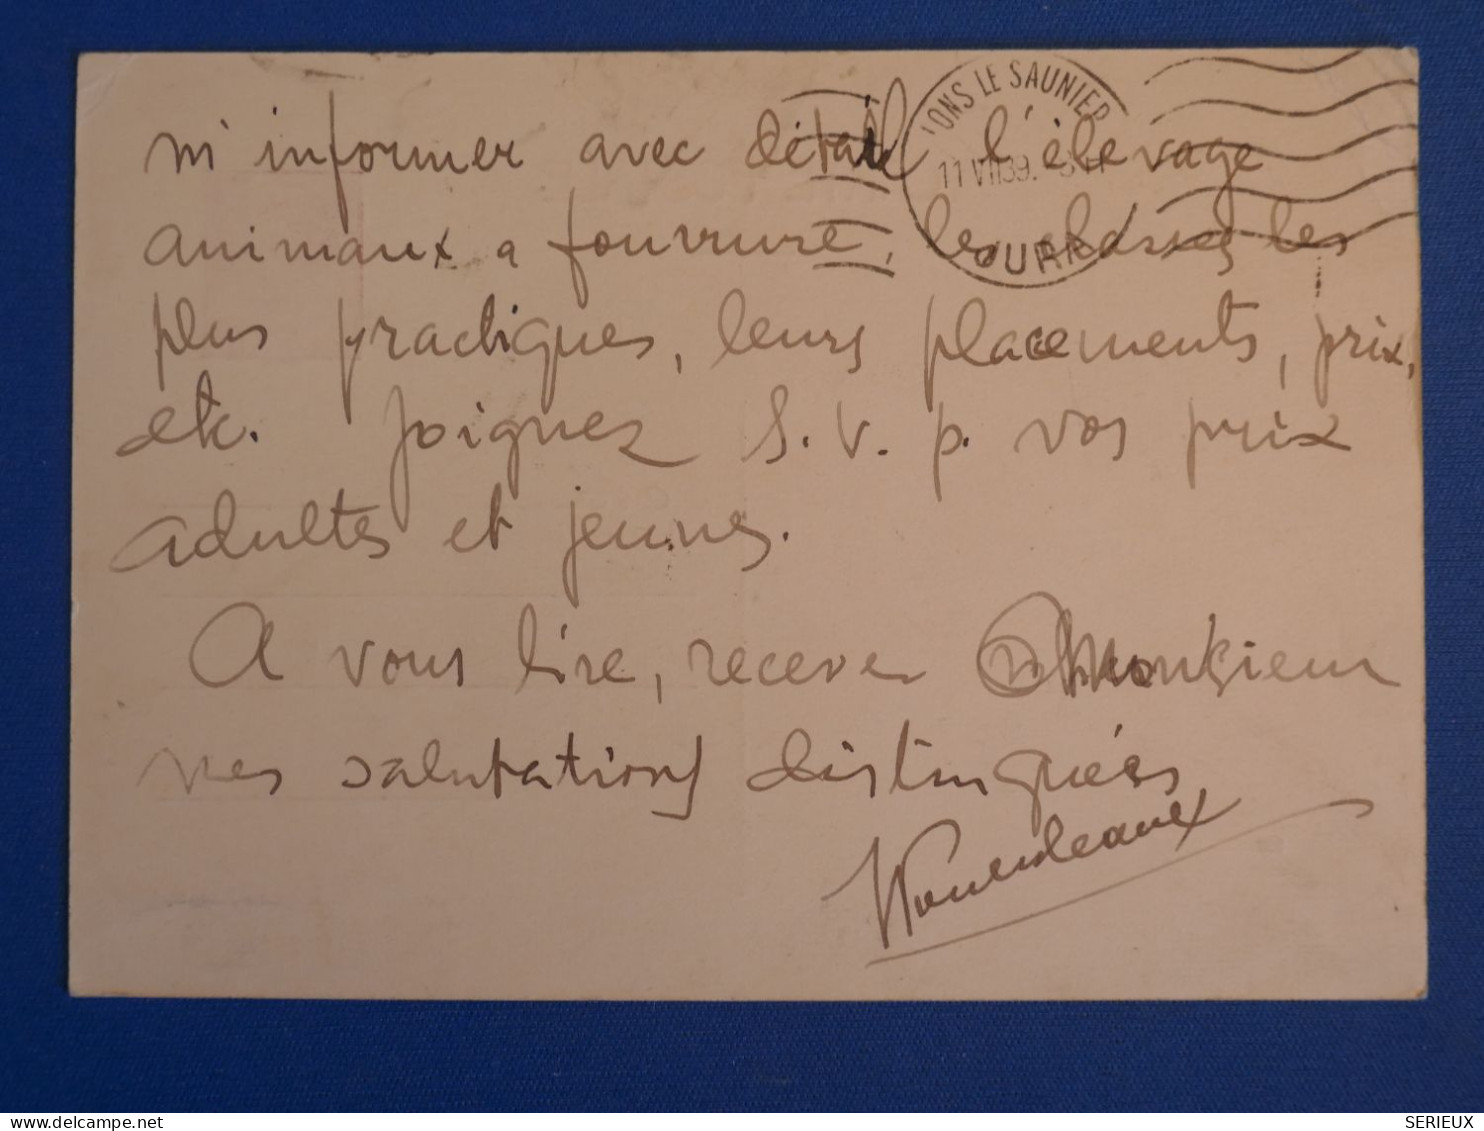 LONS LE SAUNIER
11 VII 39.
JURA
m'informer avec détail l'élevage
animaux a fourrure, les classes les
plus pratiques, leurs placements, prix,
etc. Joignez S.V.p. vos prix
adultes et jeunes.
A vous lire, recevez Monsieur
mes salutations distinguées
SERIEUX
www.delcampe.net